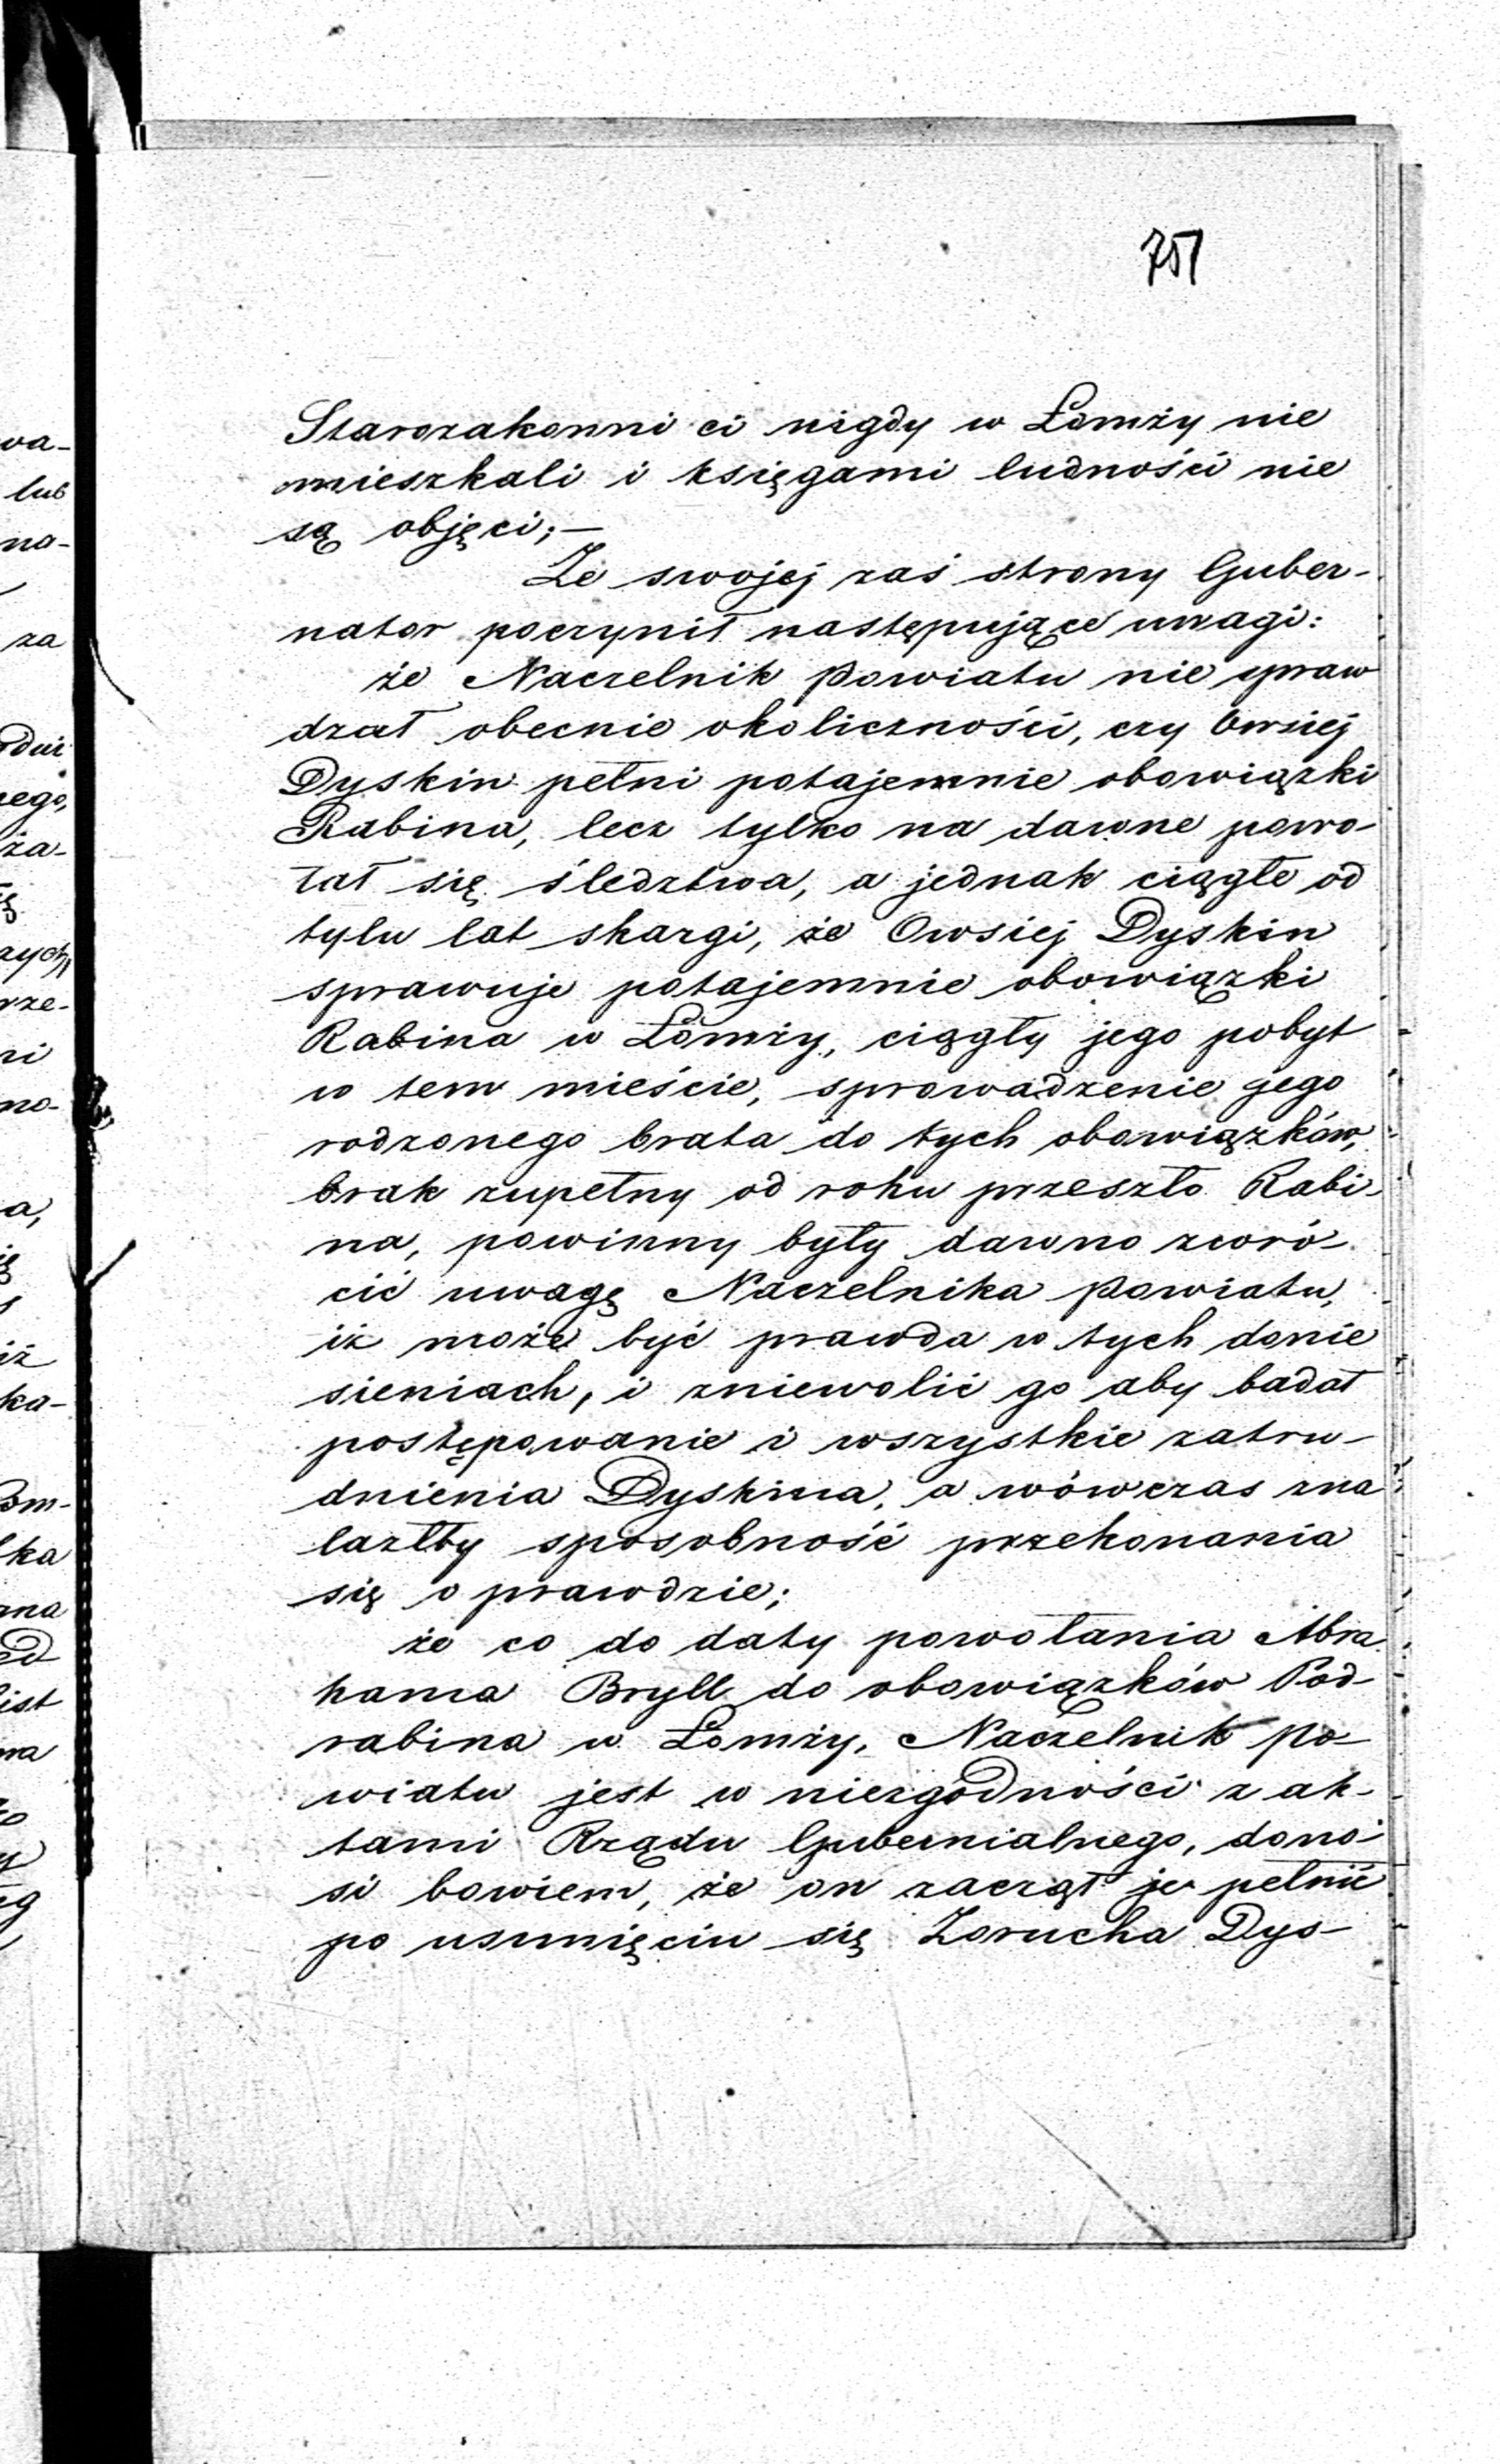 751
Starozakonni ci nigdy w Łomży nie
mieszkali i księgami ludności nie
są objęci;—
Ze swojej zaś strony Guber-
nator poczynił następujące uwagi:
że Naczelnik Powiatu nie spraw
dzał obecnie okoliczności, czy Owsiej
Dyskin pełni potajemnie obowiązki
Rabina, lecz tylko na dawne powo-
łał się śledztwa, a jednak ciągłe od
tylu lat skargi, że Owsiej Dyskin
sprawuje potajemnie obowiązki
Rabina w Łomży, ciągły jego pobyt
w tem mieście, sprowadzenie jego
rodzonego brata do tych obowiązków,
brak zupełny od roku przeszło Rabi-
na, powinny były dawno zwró-
cić uwagę Naczelnika Powiatu,
iż może być prawda w tych donie
sieniach, i zniewolić go aby badał
postępowanie i wszystkie zatru-
dnienia Dyskina, a wówczas zna
lazłby sposobność przekonania
się o prawdzie;
że co do daty powołania Abra
hama Bryll do obowiązków Pod-
rabina w Łomży, Naczelnik Po-
wiatu jest w niezgodności z ak-
tami Rządu Gubernialnego, dono-
si bowiem, że on zaczął je pełnić
po usunięciu się Zorucha Dys-
wa-
lub
na-
za
nego,
ża-
rze-
ni
no-
a,
iż
ka-
ka
zna
ist